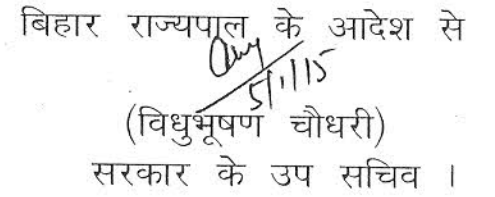 बिहार राज्यपाल के आदेश से
5/1/15
(विधुभूषण चौधरी)
सरकार के उप सचिव ।